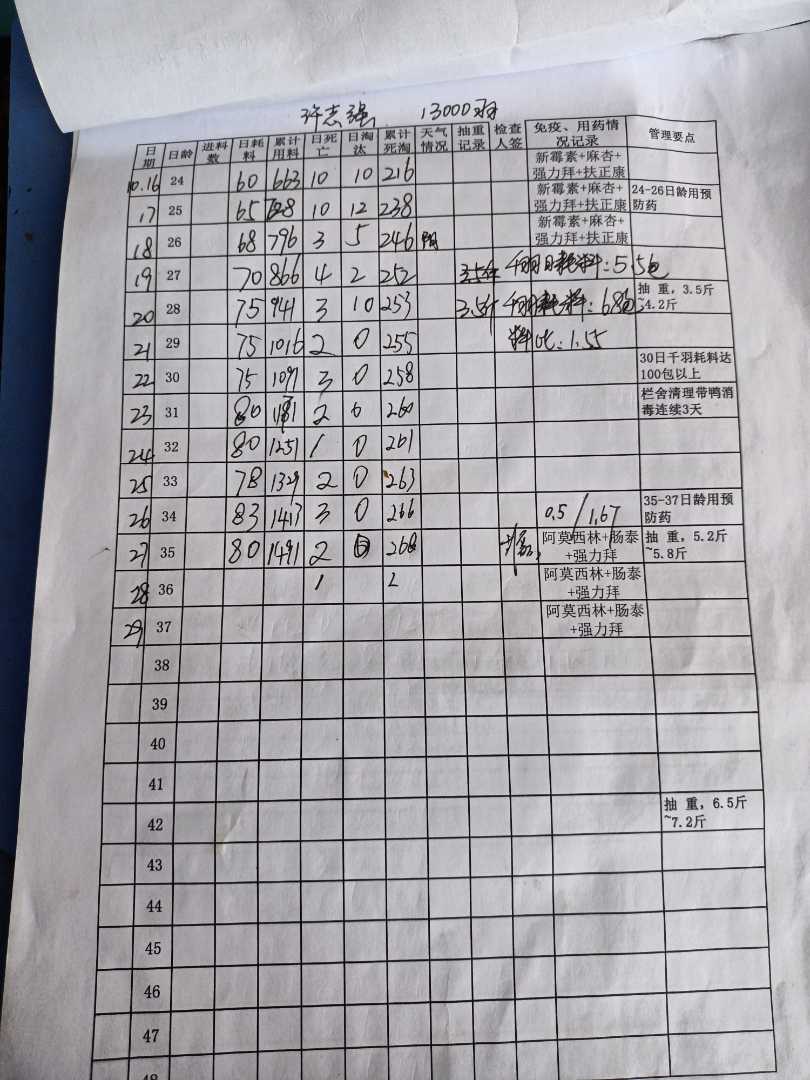 许志强 13000羽
日期 日龄 进料数 日耗料 累计用料 日死亡 日淘汰 累计死淘 天气情况 抽重记录 检查人签 免疫、用药情况记录 管理要点
10.16 24 60 663 10 10 216 新霉素+麻杏+强力拜+扶正康
17 25 65 728 10 12 238 新霉素+麻杏+强力拜+扶正康 24-26日龄用预防药
18 26 68 796 3 5 246 新霉素+麻杏+强力拜+扶正康
19 27 70 866 4 2 252 3.5斤 千羽日耗料:5.5包
20 28 75 941 3 10 253 3.5斤 千羽耗料:68包 抽重,3.5斤~4.2斤
21 29 75 1016 2 0 255 料比:1.55
22 30 75 1091 3 0 258 30日千羽耗料达100包以上
23 31 80 2 0 260 栏舍清理带鸭消毒连续3天
24 32 80 1251 1 0 261
25 33 78 1329 2 0 263
26 34 83 1413 3 0 266 0.5/1.67 35-37日龄用预防药
27 35 80 1491 2 0 268 阿莫西林+肠泰+强力拜 抽重,5.2斤~5.8斤
28 36 1 2 阿莫西林+肠泰+强力拜
29 37 阿莫西林+肠泰+强力拜
38
39
40
41
42 抽重,6.5斤~7.2斤
43
44
45
46
47
48